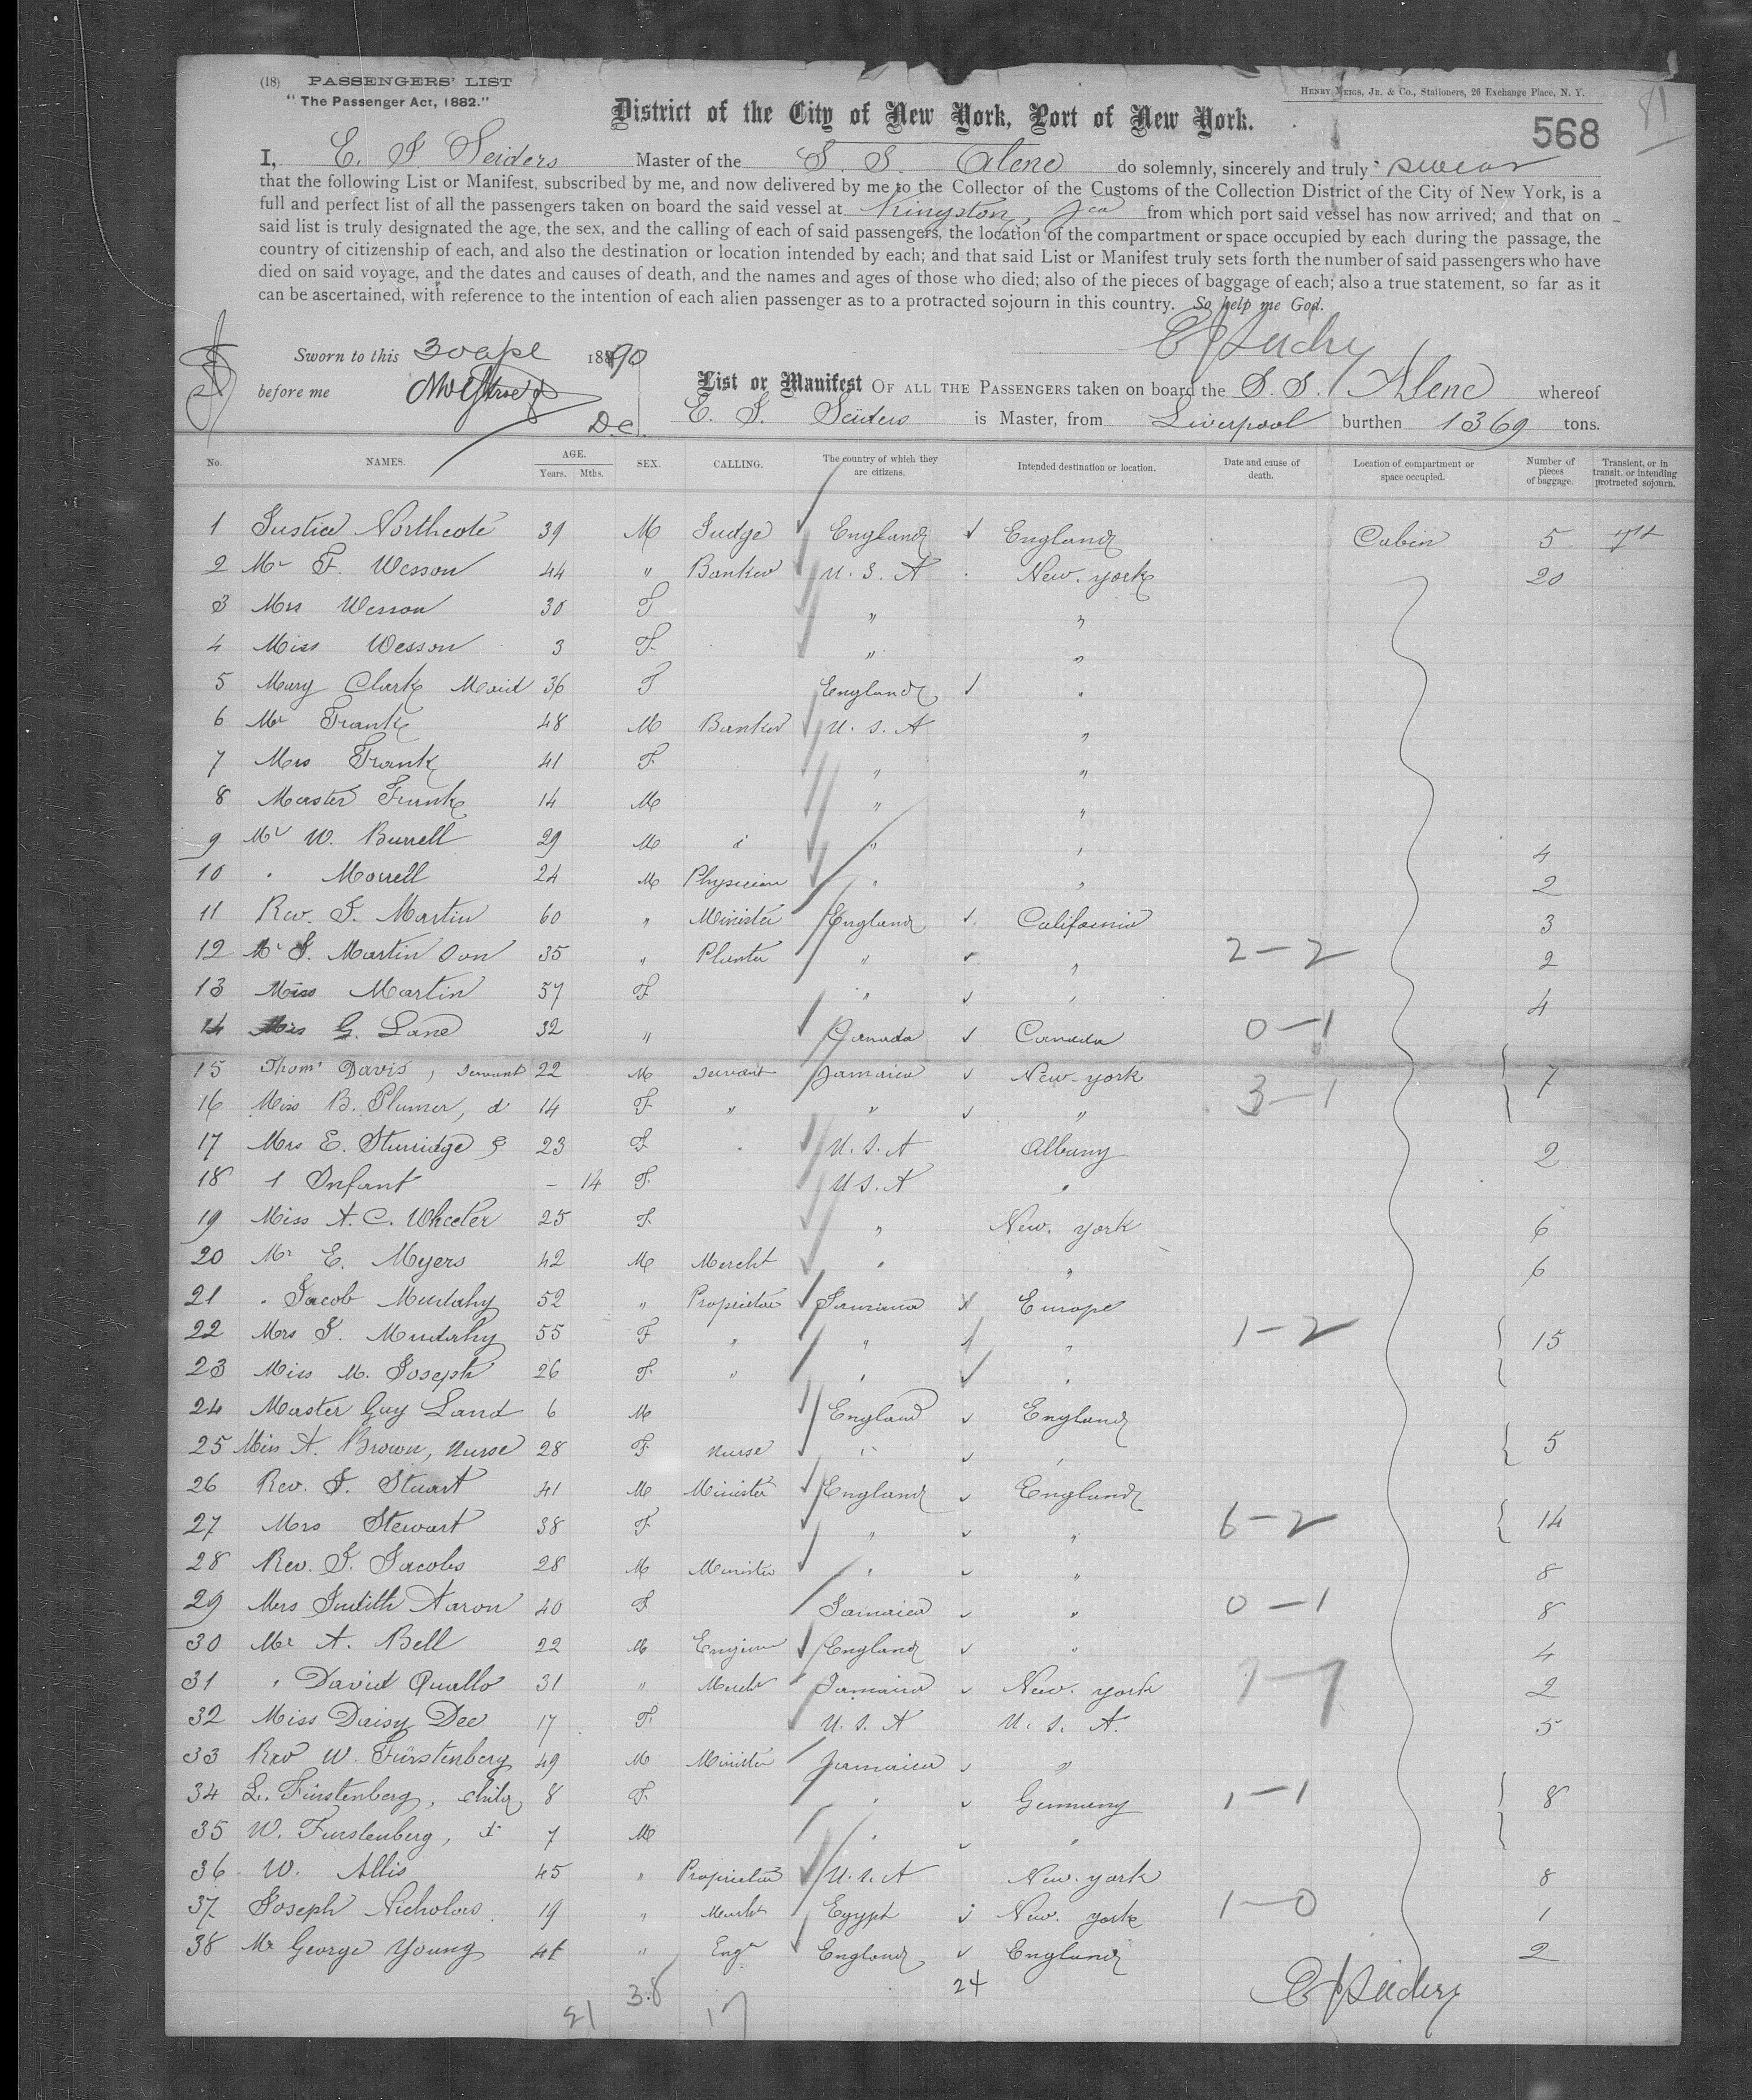 (18) PASSENGERS' LIST
"The Passenger Act, 1882."
HENRY MEIGS, JR. & CO., Stationers, 26 Exchange Place, N. Y.
81
District of the City of New York, Port of New York.
568
I, E. J. Seiders Master of the S. S. Alene do solemnly, sincerely and truly swear
that the following List or Manifest, subscribed by me, and now delivered by me to the Collector of the Customs of the Collection District of the City of New York, is a
full and perfect list of all the passengers taken on board the said vessel at Kingston, Jca from which port said vessel has now arrived; and that on
said list is truly designated the age, the sex, and the calling of each of said passengers, the location of the compartment or space occupied by each during the passage, the
country of citizenship of each, and also the destination or location intended by each; and that said List or Manifest truly sets forth the number of said passengers who have
died on said voyage, and the dates and causes of death, and the names and ages of those who died; also of the pieces of baggage of each; also a true statement, so far as it
can be ascertained, with reference to the intention of each alien passenger as to a protracted sojourn in this country. So help me God.
Sworn to this 30 Apl 1890
before me
D.C.
List or Manifest OF ALL THE PASSENGERS taken on board the S. S. Alene whereof
E. J. Seiders is Master, from Liverpool burthen 1369 tons.
No. NAMES. AGE. Years. Mths. SEX. CALLING. The country of which they are citizens. Intended destination or location. Date and cause of death. Location of compartment or space occupied. Number of pieces of baggage. Transient, or in transit, or intending protracted sojourn.
1 Justice Northcote 39 M Judge England England Cabin 5
2 Mr F. Wesson 44 " Banker U. S. A New York 20
3 Mrs Wesson 30 F " "
4 Miss Wesson 3 F " "
5 Mary Clark Maid 36 F England "
6 Mr Frank 48 M Banker U. S. A "
7 Mrs Frank 41 F " "
8 Master Frank 14 M " "
9 Mr W. Burrell 29 M " " 4
10 " Morrell 24 M Physician " " 2
11 Rev. J. Martin 60 " Minister England California 3
12 Mr J. Martin Son 35 " Planter " " 2-2 2
13 Miss Martin 57 F " " 4
14 Mrs G. Lane 32 " Canada Canada 0-1
15 Thoms Davis, servant 22 M servant Jamaica New York 7
16 Miss B. Plumer, d 14 F " " " 3-1
17 Mrs E. Sturridge & 23 F U. S. A Albany 2
18 1 Infant - 14 F U S. A "
19 Miss A. C. Wheeler 25 F " New York 6
20 Mr E. Myers 42 M Mercht " " 6
21 " Jacob 52 " Proprietor Jamaica Europe
22 Mrs J. 55 F " " " 1-2 15
23 Miss M. Joseph 26 F " " "
24 Master Guy Land 6 M England England
25 Miss A. Brown, nurse 28 F nurse " " 5
26 Rev. J. Stuart 41 M Minister England England
27 Mrs Stewart 38 F " " 6-2 14
28 Rev. J. Jacobs 28 M Minister " " 8
29 Mrs Judith Aaron 40 F Jamaica " 0-1 8
30 Mr A. Bell 22 M Engineer England " 4
31 " David Quallo 31 " Mercht Jamaica New York 2
32 Miss Daisy Dee 17 F U. S. A U. S. A. 5
33 Rev W. Fürstenberg 49 M Minister Jamaica "
34 L. Fürstenberg, child 8 F " Germany 1-1 8
35 W. Furstenberg, d 7 M " "
36 W. Allis 45 " Proprietor U. S. A New York 8
37 Joseph Nicholas 19 " Mercht Egypt New York 1-0 1
38 Mr George Young " Engr England England 2
38 24
21 17